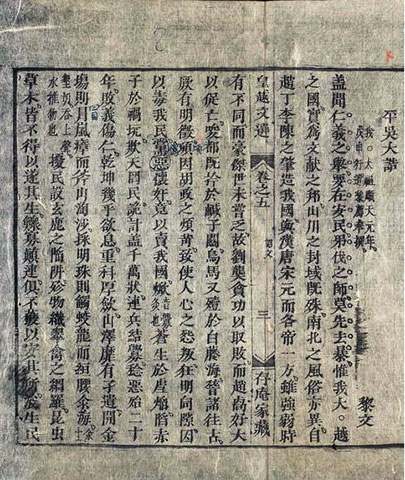 平吳大誥
我太祖順天元年
黎文
蓋聞仁義之舉要在安民弔伐之師莫先去暴惟我大越
之國實為文献之邦山川之封域既殊南北之風俗亦異自
趙丁李陳之肇造我國與漢唐宋元而各帝一方雖強弱時
有不同而豪傑世未嘗乏故劉龑貪功以取敗而趙卨好大
以促亡唆都既擒於鹹子關烏馬又殪於白藤海稽諸往古
厥有明徵頃因胡政之煩苛致使人心之怨叛狂明伺隙因
皇越文選 卷之五 誥文 三 存庵家藏
以毒我民黨惡懷奸竟以賣我國焮蒼生於虐焰陷赤
子於禍坑欺天罔民詭計蓋千萬狀連兵結釁稔惡殆二十
年敗義傷仁乾坤幾乎欲息重科厚歛山澤靡有孑遺開金
塲則冒嵐瘴而斧山淘沙採明珠則觸蛟龍而緪腰汆海
擾民設玄鹿之陷阱殄物織翠禽之網羅昆虫
草木皆不得以遂其生鰥寡顛連俱不獲以安其所浚生民